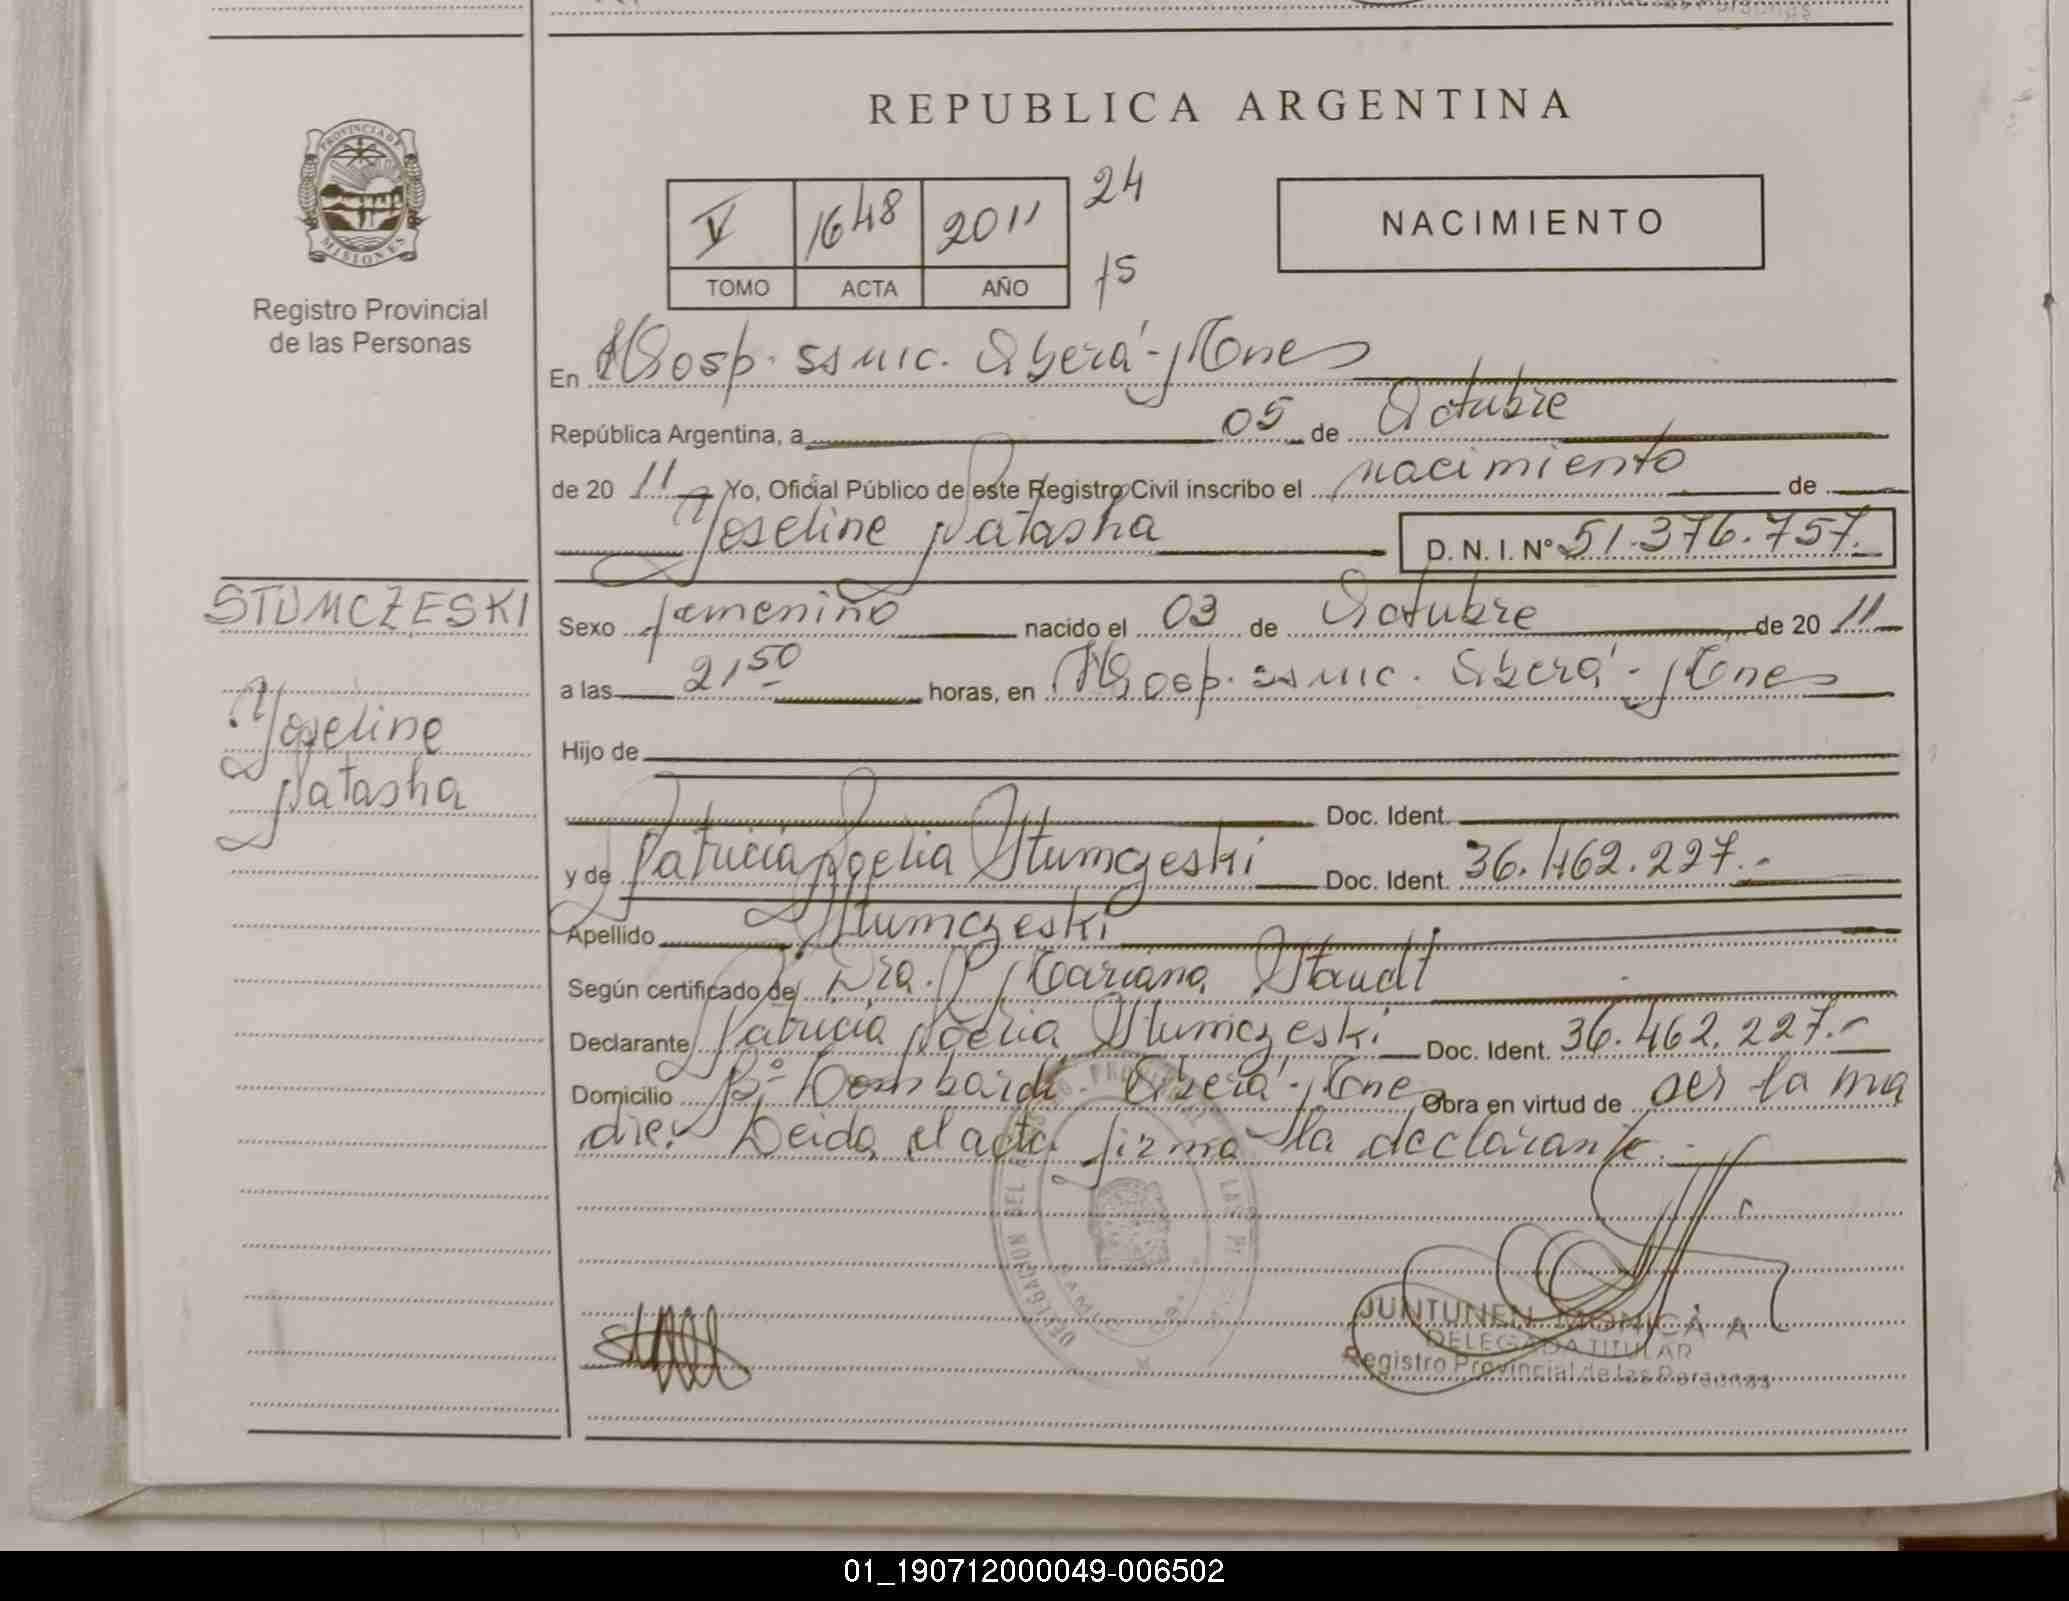 REPUBLICA ARGENTINA
PROVINCIA DE
MISIONES
Registro Provincial
de las Personas
V 1648 2011 24
TOMO ACTA AÑO 15
NACIMIENTO
En Hosp. SSMIC. Oberá-Mnes
República Argentina, a 05 de Octubre
de 20 11 Yo, Oficial Público de este Registro Civil inscribo el nacimiento de
Yoseline Natasha D. N. I. Nº 51.376.757.
STUMCZESKI
Yoseline
Natasha
Sexo femenino nacido el 03 de Octubre de 20 11
a las 21,50 horas, en Hosp. SSMIC. Oberá-Mnes
Hijo de
Doc. Ident.
y de Patricia Noelia Stumczeski Doc. Ident. 36.462.227.-
Apellido Stumczeski
Según certificado de Dra. Mariana Staudt
Declarante Patricia Noelia Stumczeski Doc. Ident. 36.462.227.-
Domicilio Bº Lombardi Oberá-Mnes Obra en virtud de ser la ma
dre. Leida el acta firma la declarante.-
JUNTUNEN MONICA A
DELEGADA TITULAR
Registro Provincial de las Personas
01_190712000049-006502